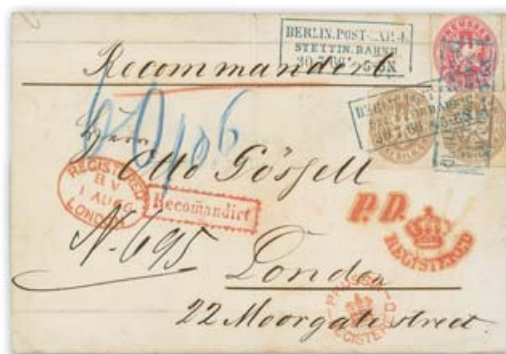 BERLIN.POST-EXP.4.
STETTIN.BAHNH.
30 7.66 5-6N
PREUSSEN
Recommandirt
Herrn
Otto Göschell
REGISTERED
1 AU 66
LONDON
Recomandirt
P.D.
REGISTERED
No. 695
London
REGISTERED
22 Moorgate street.